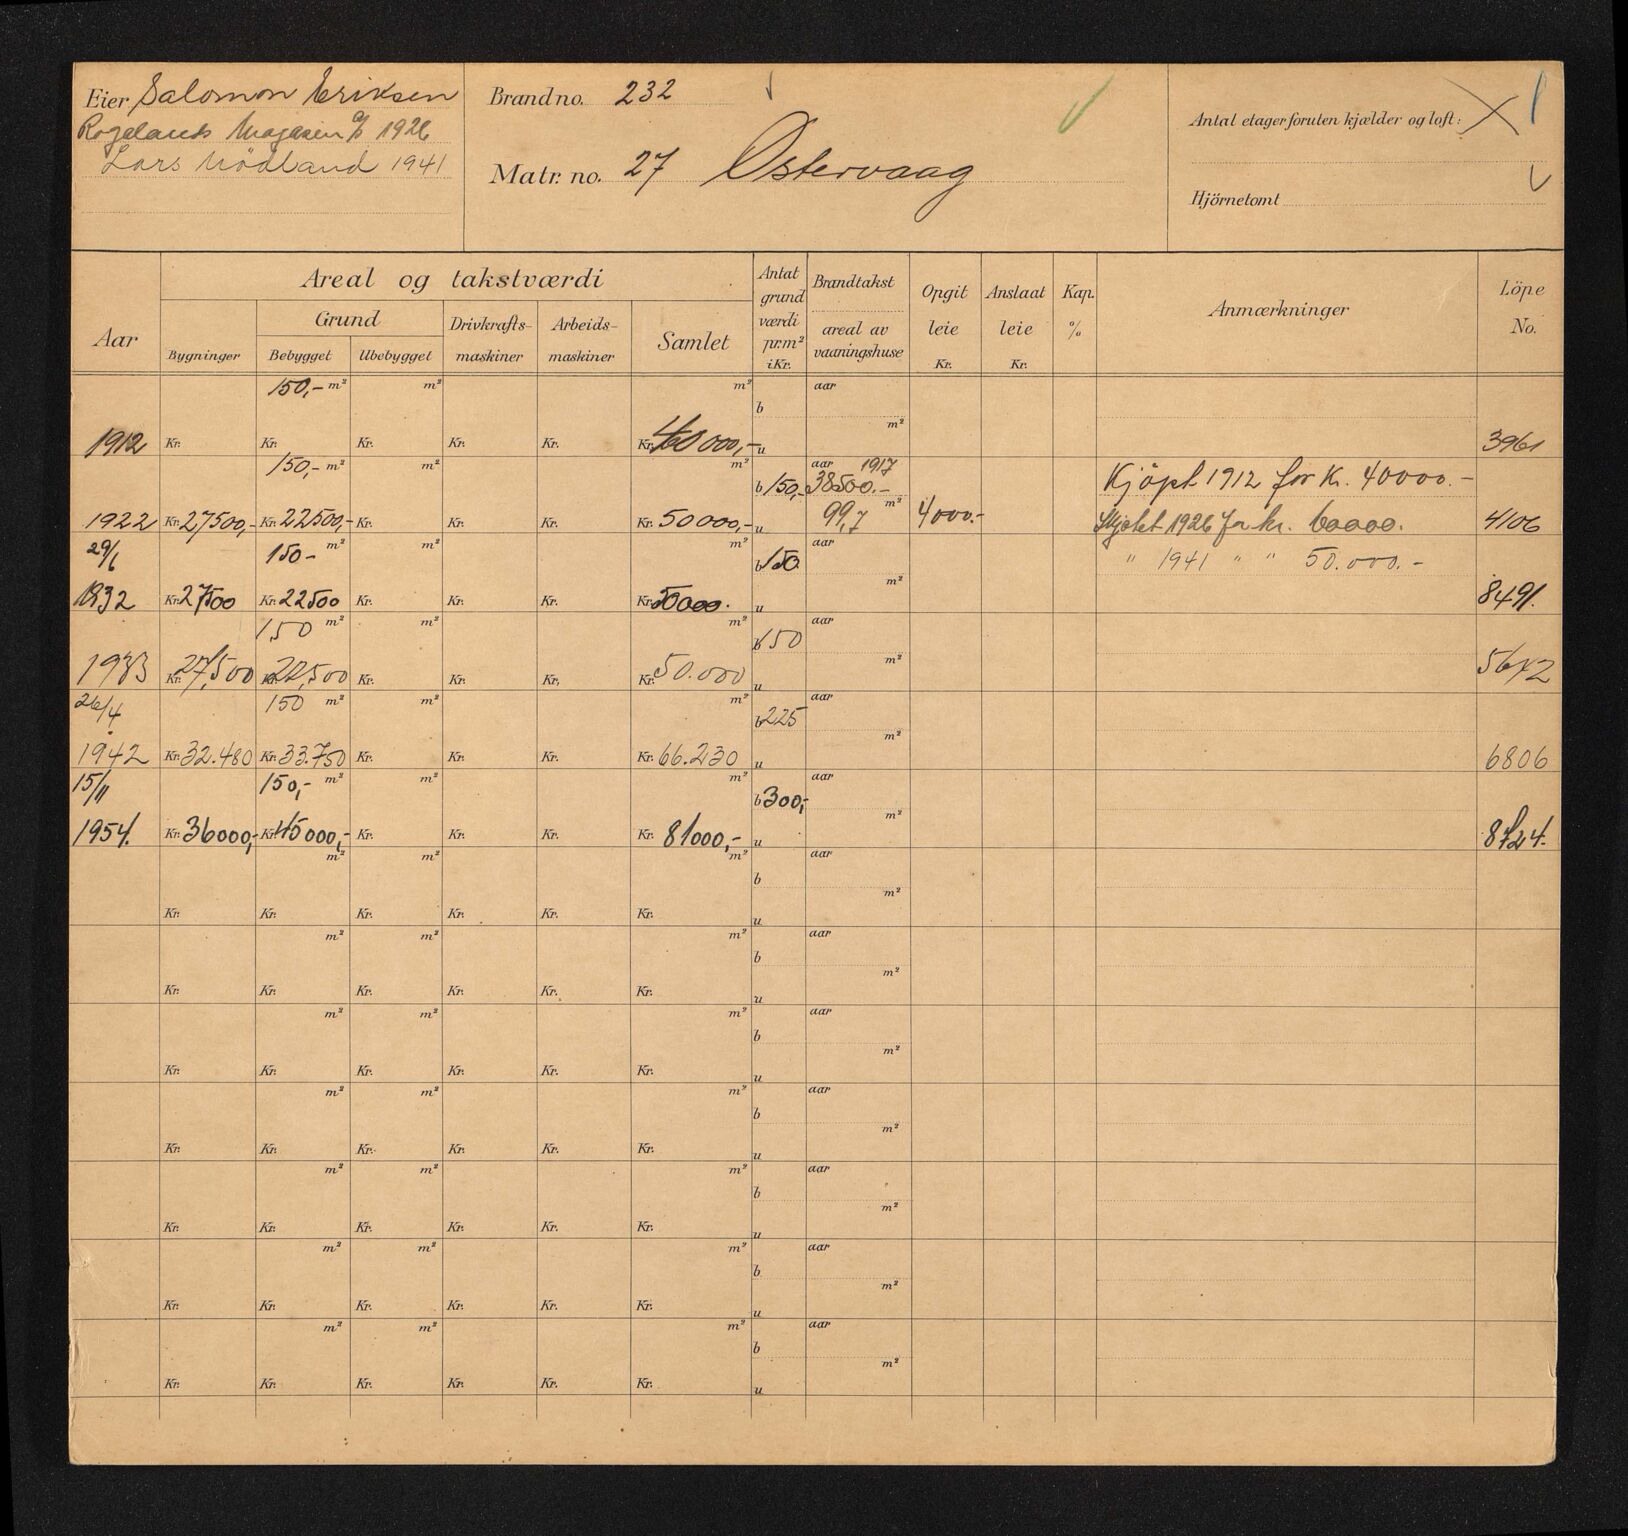 Eier Salomon Eriksen
Rogalands Magasin A/S 1926
Lars Mödland 1941
Brand no. 232
Matr. no. 27 Østervaag
Antal etager foruten kjælder og loft:
Hjörnetomt
Aar
Areal og takstværdi
Bygninger
Grund
Bebygget Ubebygget
Drivkrafts-maskiner
Arbeids-maskiner
Samlet
Antat grund værdi pr. m² i Kr.
Brandtakst
areal av vaaningshuse
Opgit leie Kr.
Anslaat leie Kr.
Kap. %
Anmærkninger
Löpe No.
150,- m² m² m² aar
b
m²
1912 Kr. Kr. Kr. Kr. Kr. Kr. 000,- u 3961
150,- m² m² m² aar 1917
b 150,- 38500.- Kjöpt 1912 for Kr. 40000.-
m²
1922 Kr. 27500,- Kr. 22500,- Kr. Kr. Kr. Kr. 50000,- u 99,7 4000.- Skjötet 1926 for kr. 60000. 4106
29/6 150- m² m² m² aar
b 150 " 1941 " " 50.000.-
m²
1932 Kr. 27500 Kr. 22500 Kr. Kr. Kr. Kr. 50000. u 8491.
150 m² m² m² aar
b 150
m²
1933 Kr. 27,500 Kr. 22,500 Kr. Kr. Kr. Kr. 50.000 u
26/4 150 m² m² m² aar
b 225
m²
1942 Kr. 32.480 Kr. 33.750 Kr. Kr. Kr. Kr. 66.230 u 6806
15/11 150,- m² m² m² aar
b 300,-
m²
1954. Kr. 36000,- Kr. 45000,- Kr. Kr. Kr. Kr. 81000,- u 8724.
m² m² m² aar
b
m²
Kr. Kr. Kr. Kr. Kr. Kr. u
m² m² m² aar
b
m²
Kr. Kr. Kr. Kr. Kr. Kr. u
m² m² m² aar
b
m²
Kr. Kr. Kr. Kr. Kr. Kr. u
m² m² m² aar
b
m²
Kr. Kr. Kr. Kr. Kr. Kr. u
m² m² m² aar
b
m²
Kr. Kr. Kr. Kr. Kr. Kr. u
m² m² m² aar
b
m²
Kr. Kr. Kr. Kr. Kr. Kr. u
m² m² m² aar
b
m²
Kr. Kr. Kr. Kr. Kr. Kr. u